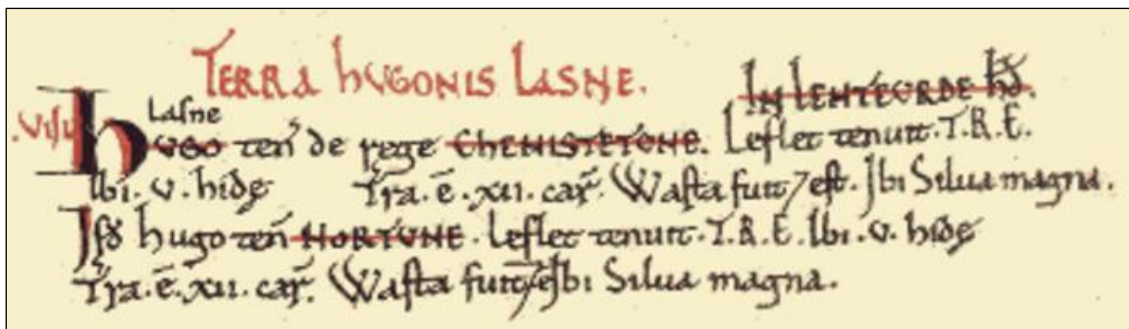 TERRA HUGONIS LASNE.
IN LENTEURDE HD̃.
.VIII.
Lasne
HUGO teñ de rege CHENISTETUNE. Leflet tenuit.T.R.E.
Ibi.v.hidę Tr̃a.ē.xii.car̃. Wasta fuit ⁊ est. Ibi Silua magna.
Isđ hugo teñ NORTUNE. Leflet tenuit.T.R.E. Ibi.v.hidę
Tr̃a.ē.xii.car̃. Wasta fuit ⁊ ē Ibi Silua magna.